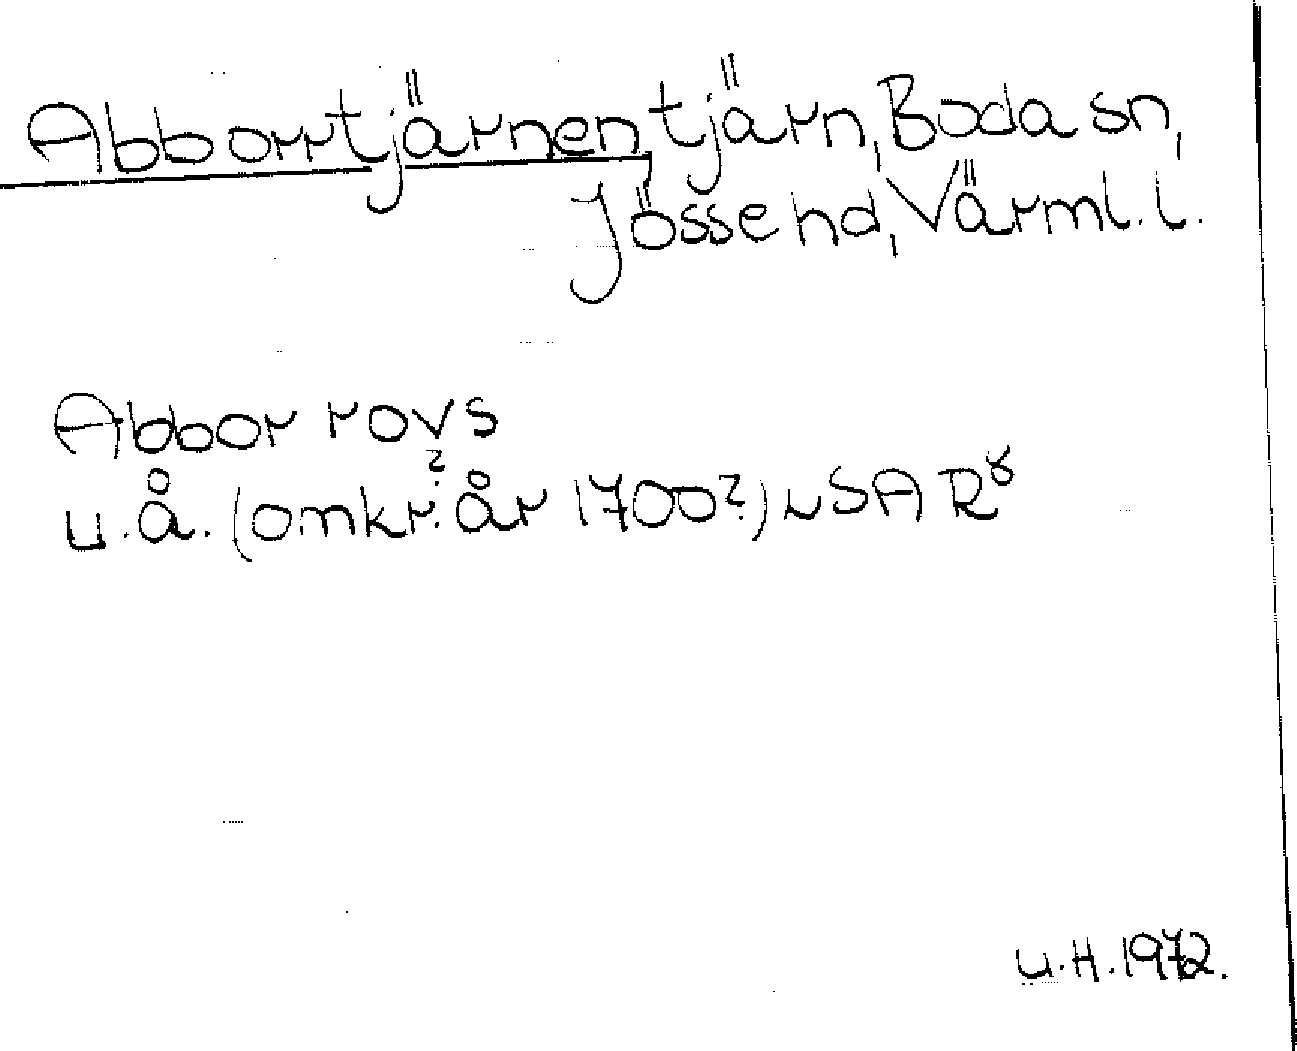 Abborrtjärnen, tjärn, Boda sn,
Jösse hd, Värml. l.
Abbor rovs
u.å. (omkr.? år 1700?) NSA R8
U.H. 1972.